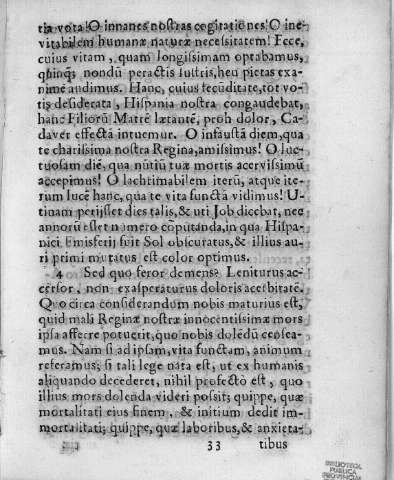 tia vota! O innanes nostras cogitationes! O ine-
vitabilem humanæ naturæ necessitatem! Ecce,
cuius vitam, quam longissimam optabamus,
quinq; nondũ peractis lustris, heu pietas exa-
nimẽ audimus. Hanc, cuius fecũditate, tot vo-
tis desiderata, Hispania nostra congaudebat,
hanc Filiorũ Matrẽ lætantẽ, proh dolor, Ca-
daver effectã intuemur. O infaustã diem, qua
te charissima nostra Regina, amissimus! O luc-
tuosam diẽ, qua nũtiũ tuæ mortis acervissimũ
accepimus! O lachrimabilem iterũ, atque ite-
rum lucẽ hanc, qua te vita functã vidimus! U-
tinam perijsset dies talis, & uti Job dicebat, nec
annorũ esset numero cõputanda, in qua Hispa-
nici Emisferij fuit Sol obscuratus, & illius au-
ri primi mutatus est color optimus.
4 Sed quo feror demens? Leniturus ac-
cersor, non exasperaturus doloris acerbitatẽ.
Quo circa considerandum nobis maturius est,
quid mali Reginæ nostræ innocentissimæ mors
ipsa afferre potuerit, quo nobis dolẽdũ censea-
mus. Nam si ad ipsam, vita functam, animum
referamus; si tali lege nata est, ut ex humanis
aliquando decederet, nihil profectò est, quo
illius mors dolenda videri possit; quippe, quæ
mortalitati eius finem, & initium dedit im-
mortalitati; quippe, quæ laboribus, & anxieta-
33 tibus
BIBLIOTECA
PUBLICA
PROVINCIAL